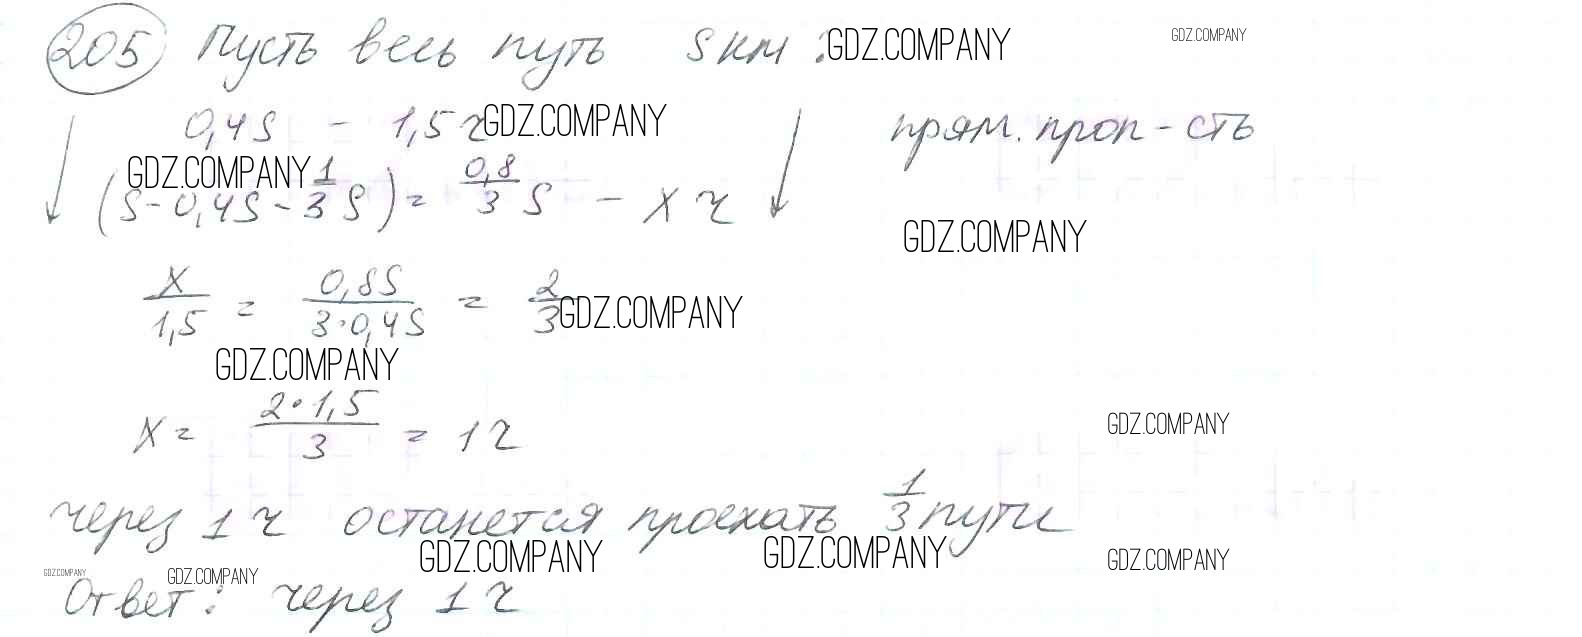 205 Пусть весь путь S км : GDZ.COMPANY GDZ.COMPANY
0,4S - 1,5 ч GDZ.COMPANY прям. проп-сть
GDZ.COMPANY
(S-0,4S-1/3 S) = 0,8/3 S - x ч
GDZ.COMPANY
x/1,5 = 0,8S/3·0,4S = 2/3 GDZ.COMPANY
GDZ.COMPANY
x = 2·1,5/3 = 1 ч GDZ.COMPANY
через 1 ч останется проехать 1/3 пути
GDZ.COMPANY GDZ.COMPANY GDZ.COMPANY
GDZ.COMPANY GDZ.COMPANY
Ответ: через 1 ч